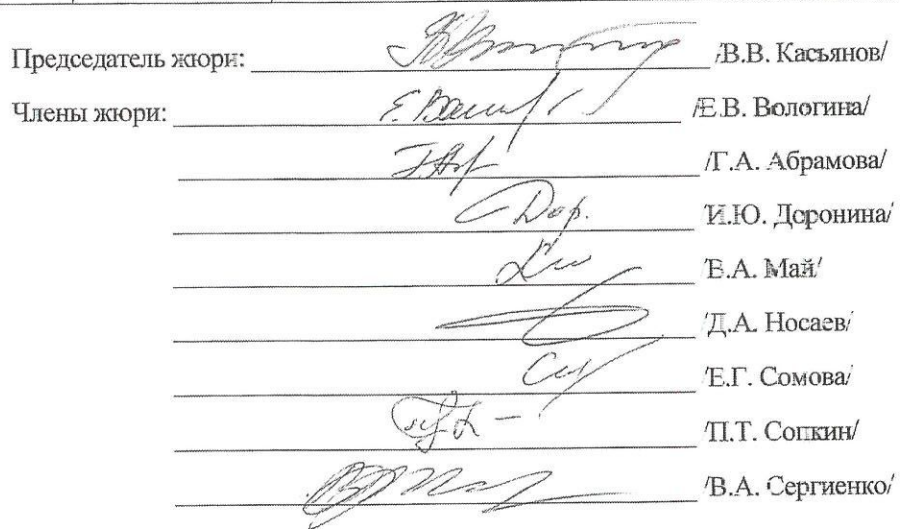 Председатель жюри: /В.В. Касьянов/
Члены жюри: /Е.В. Вологина/
/Г.А. Абрамова/
/И.Ю. Доронина/
/Е.А. Май/
/Д.А. Носаев/
/Е.Г. Сомова/
/П.Т. Сопкин/
/В.А. Сергиенко/